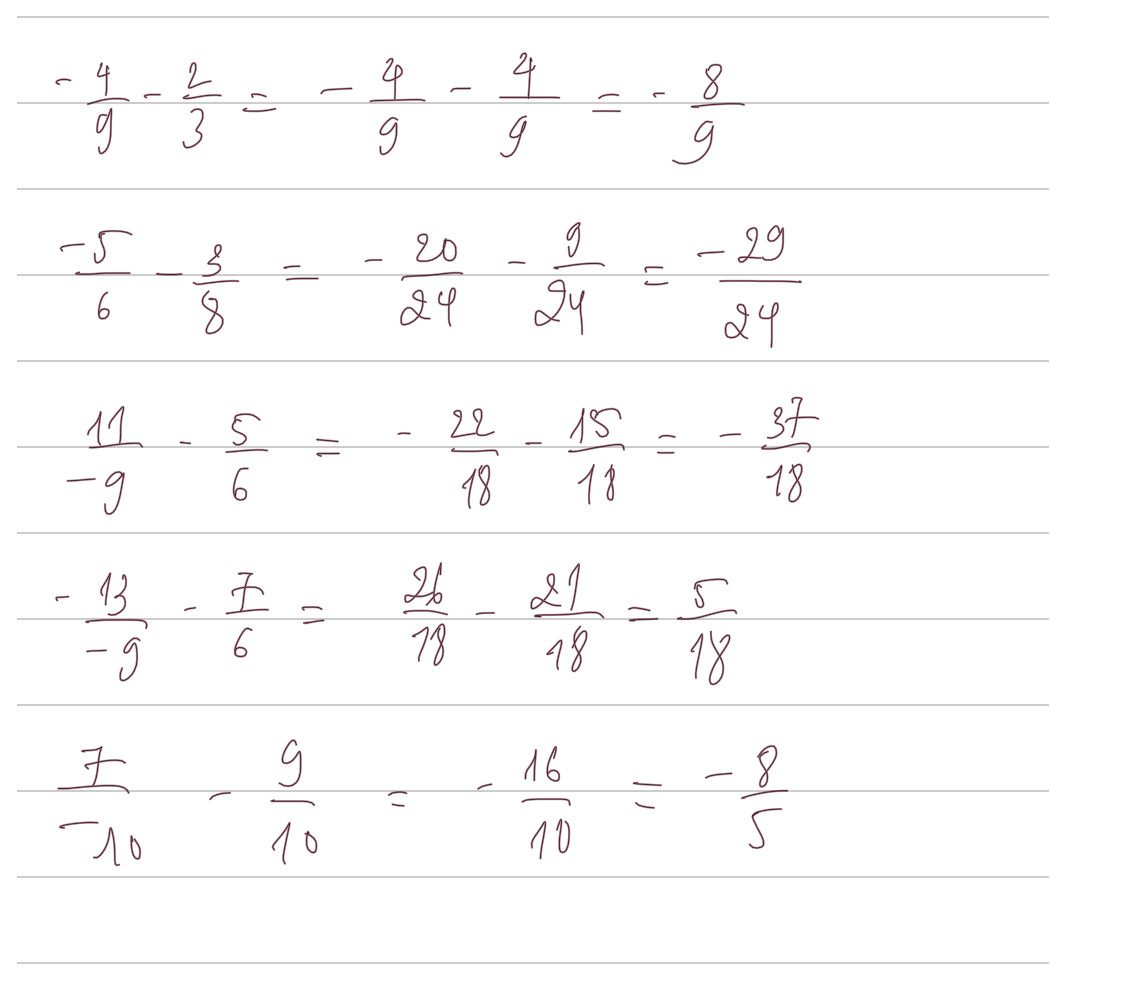 -4/9 - 2/3 = -4/9 - 4/9 = -8/9
-5/6 - 3/8 = -20/24 - 9/24 = -29/24
11/-9 - 5/6 = -22/18 - 15/18 = -37/18
-13/-9 - 7/6 = 26/18 - 21/18 = 5/18
7/-10 - 9/10 = -16/10 = -8/5